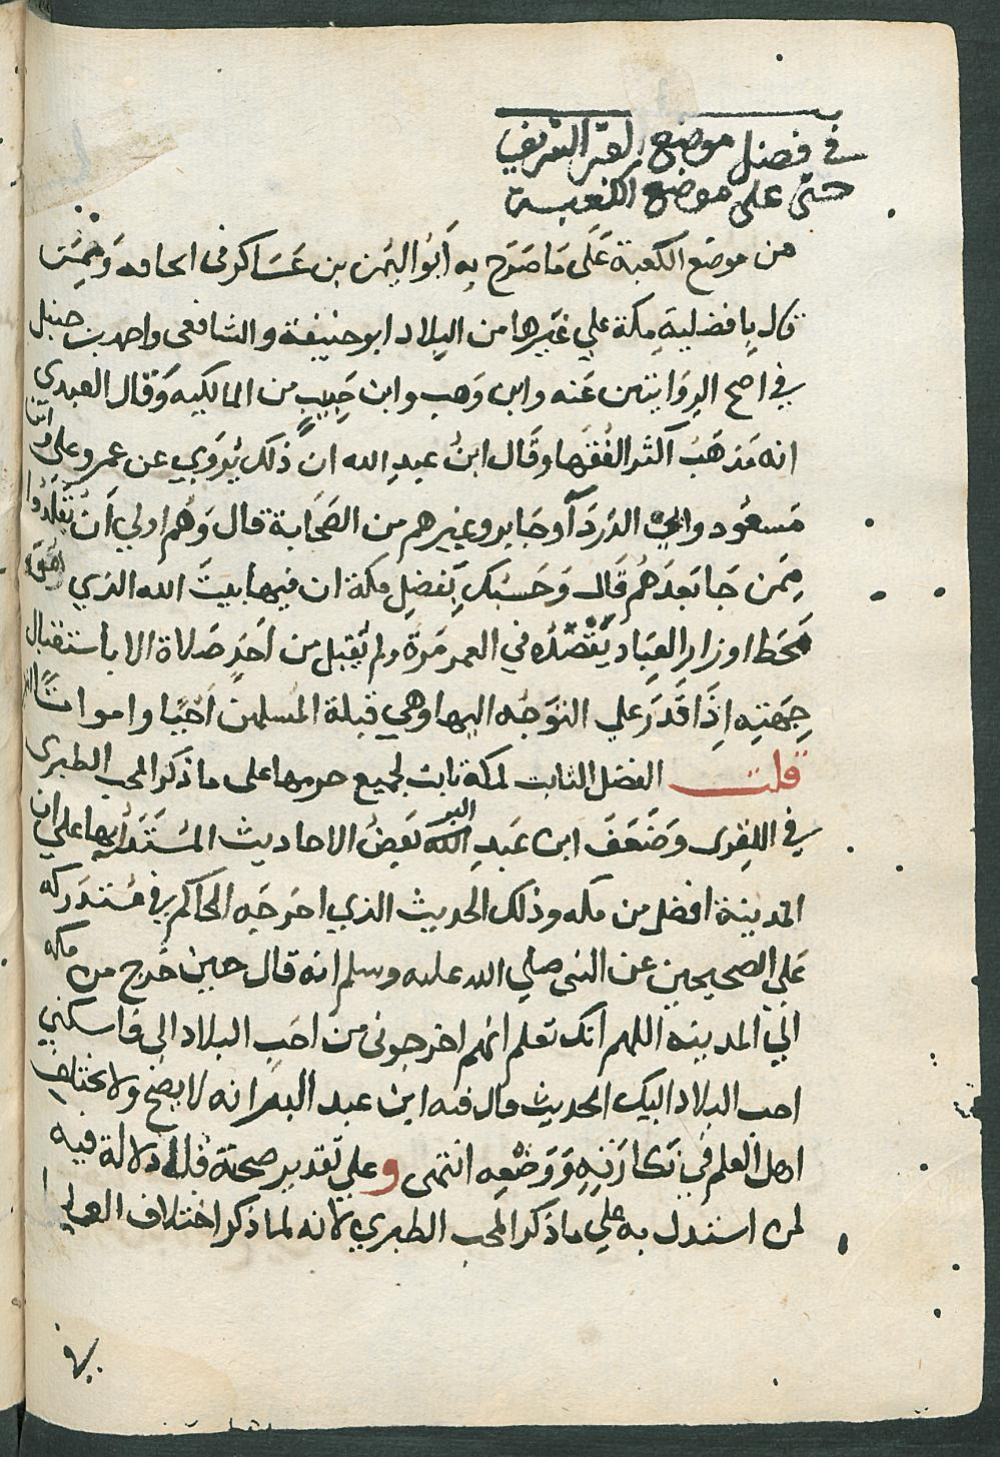 في فضل موضع القبر الشريف
حتى على موضع الكعبة
من موضع الكعبة عَلَى مَا صَرَح بِهِ أَبُوْ اليُمْن بن عَسَاكر في اتحافه وَمِمَّنْ
قال بِافضليةِ مكة علي غيرها من البلاد ابو حنيفة والشافعى واحمد بن حنبل
في اصح الروَايتين عَنه وابن وَهب وابن حَبِيبٍ من المالكيه وَقال العبدي
انه مَذهَبُ اكثر الفُقَها وقَال ابنُ عبدِ الله ان ذلك يُروَي عن عمر وعلى وابن
مَسعُود وابي الدَردَآ وجَابر وغيرهم من الصَحَابة قال وَهُم اولي اَن يُقَلَدُوا
مِمَن جَا بَعدَهُم قَال وَحَسْبُك بِفضلِ مكة ان فيها بيتَ الله الذي
محَط اوزار العِبَاد يقْصدُه في العمر مَرَة ولم يَقبل من اَحَدٍ صَلاة الا باستقبال
جِهَتِهِ اِذَا قَدَر علي التوَجُه اليها وهي قبلة المُسلمين اَحْيًا وامواتًا
قلت الفضل الثابت لمكة ثابت لجميع حرمها على ما ذكر المحب الطبرى
في القرى وَضَعَفَ ابن عَبدِ البر بَعضُ الاحاديث المُستَدَل بها علي ان
المدينة افضل من مكه وذلك الحديث الذي اخرَجَه الحاكم في مُستدرَكه
عَلى الصحيحين عن النبي صلي الله عليه وسلم انه قال حين خرج من مكه
الي المدينه اللهم انك تعلم انهم اخرجونى من احَبِ البلاد الى فاسكني
احب البلاد اليك الحديث قال فيه ابن عبد البر انه لا يصَح ولا يختلف
اهل العلم في نَكَارَتِهِ وَوَضْعِه انتهى وعلي تقدير صحته فلا دلالة فيه
لمن استدل به علي ما ذكر المحب الطبري لانه لما ذكر اختلاف العلما